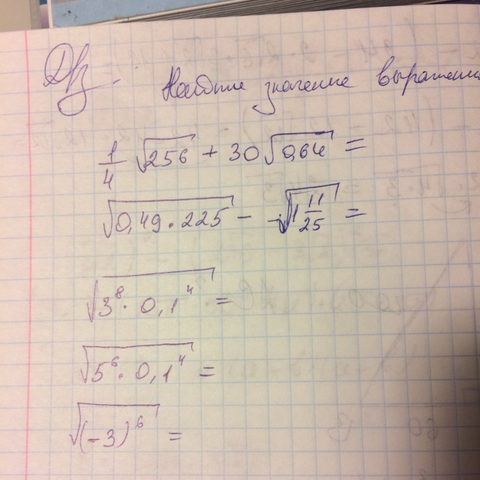 Дз. Найдите значение выражени
1/4 √256 + 30√0,64 =
√0,49·225 - √1 11/25 =
√3⁸·0,1⁴ =
√5⁶·0,1⁴ =
√(-3)⁶ =